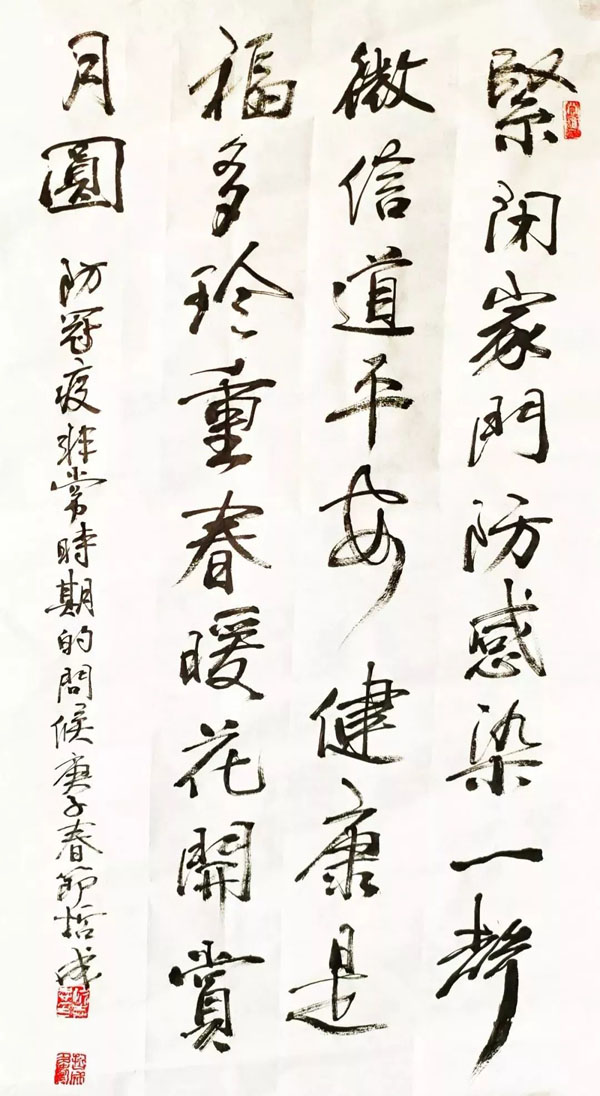 緊闭家門防感染一聲
微信道平安健康是
福多珍重春暖花開賞
月圓
防冠疫非常時期的問候庚子春節哲成